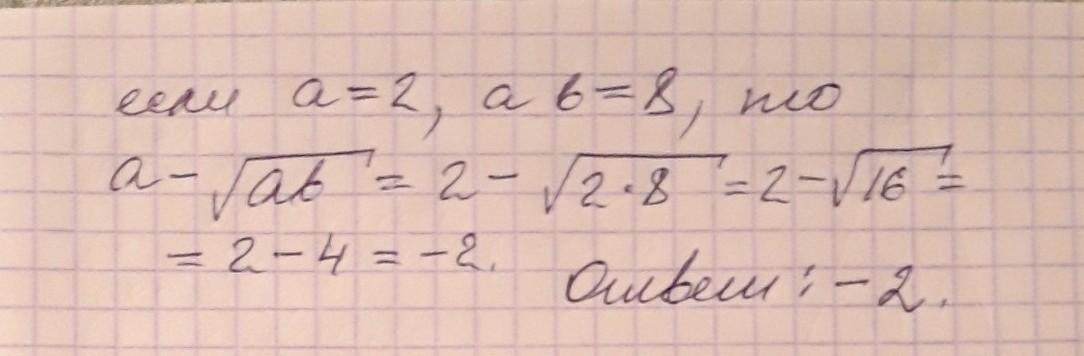 если a=2, а b=8, то
a-√ab = 2-√2·8 = 2-√16 =
= 2-4 = -2.
Ответ: -2.